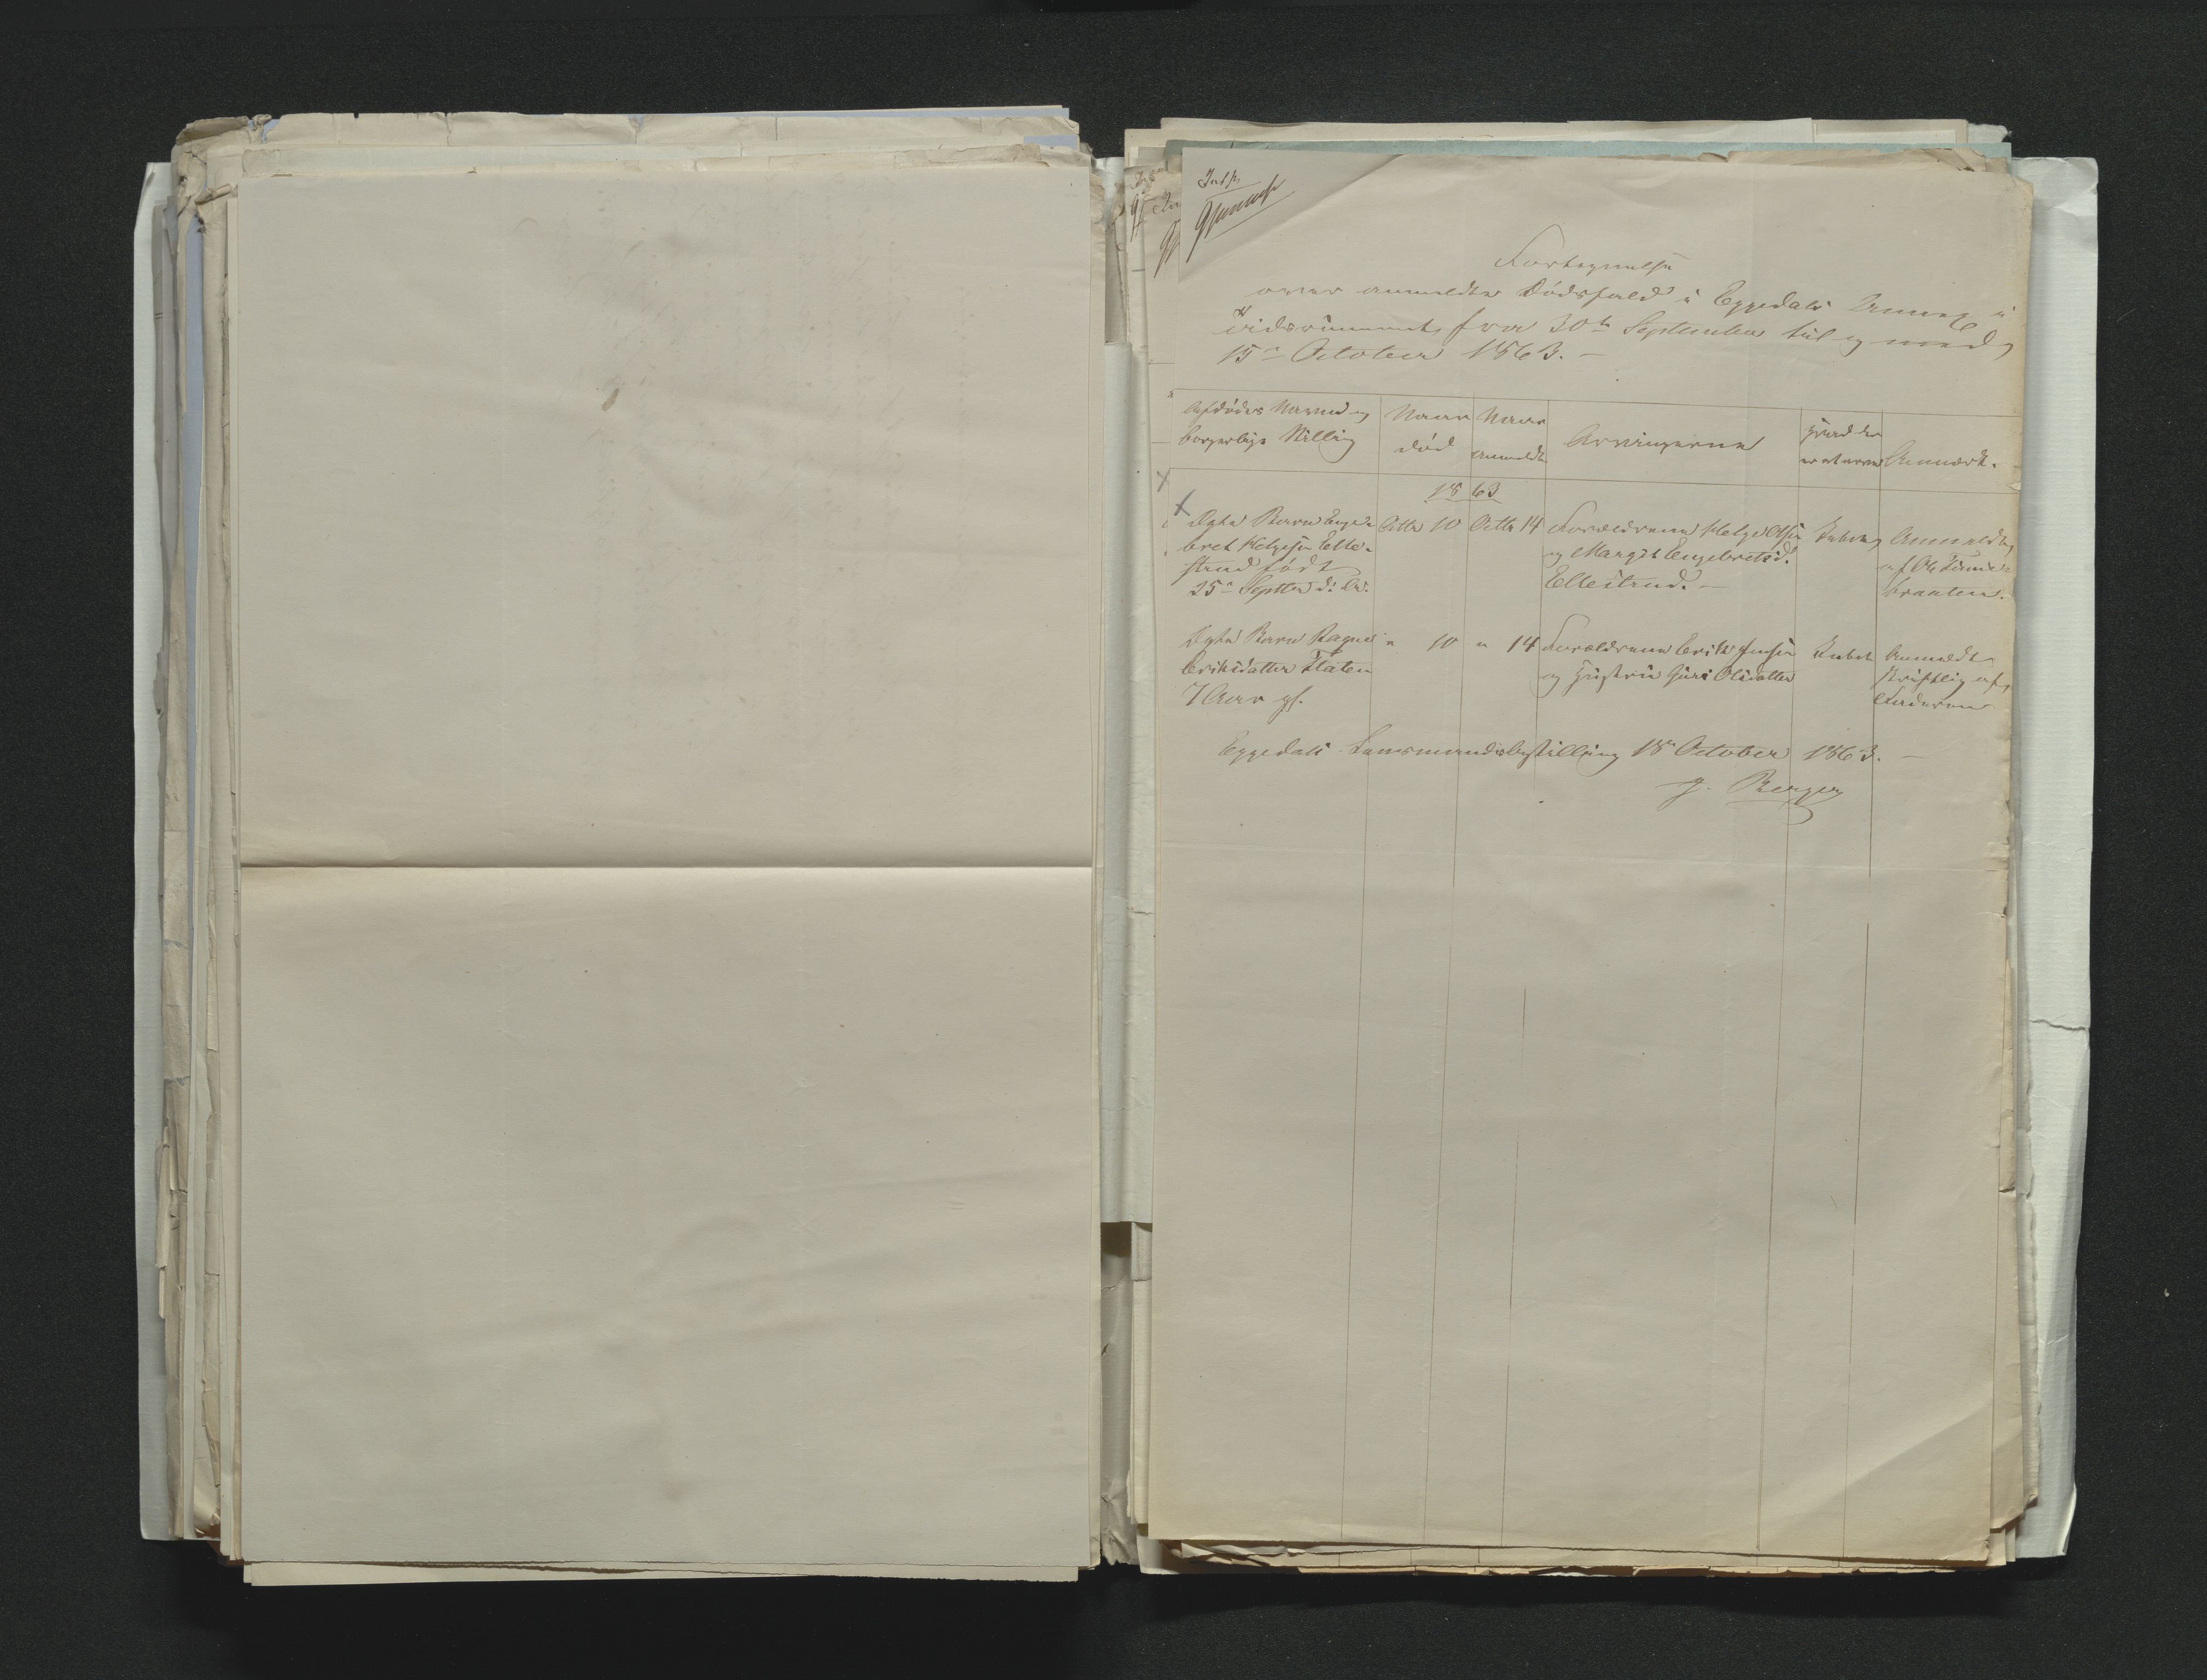 Fortegnelse
over anmeldte Dødsfald i Eggedals Annex i
Tidsrummet fra 30te September til og med
15de October 1863. -
Afdødes Navn og
borgerlige Stilling
Naar
død
Naar
anmeldt
Arvingerne
Anmærk.
1863
Ægte Barn Enge-
bret Helgesen Elle-
strud født
25de Septbr d: A:
Octbr 10
Octbr 14
Forældrene Helge Olsen
og Margit Engebretsd.
Ellestrud. -
Anmeldt
af Ole
braaten.
Ægte Barn Ragne
Eriksdatter Flaten
7 Aar gl.
" 10
" 14
Forældrene Erik Jensen
og Hustru Guri Olsdatter
Anmeldt
skriftlig af
Faderen
Eggedals Lensmandsbestilling 18de October 1863. -
J. Berger